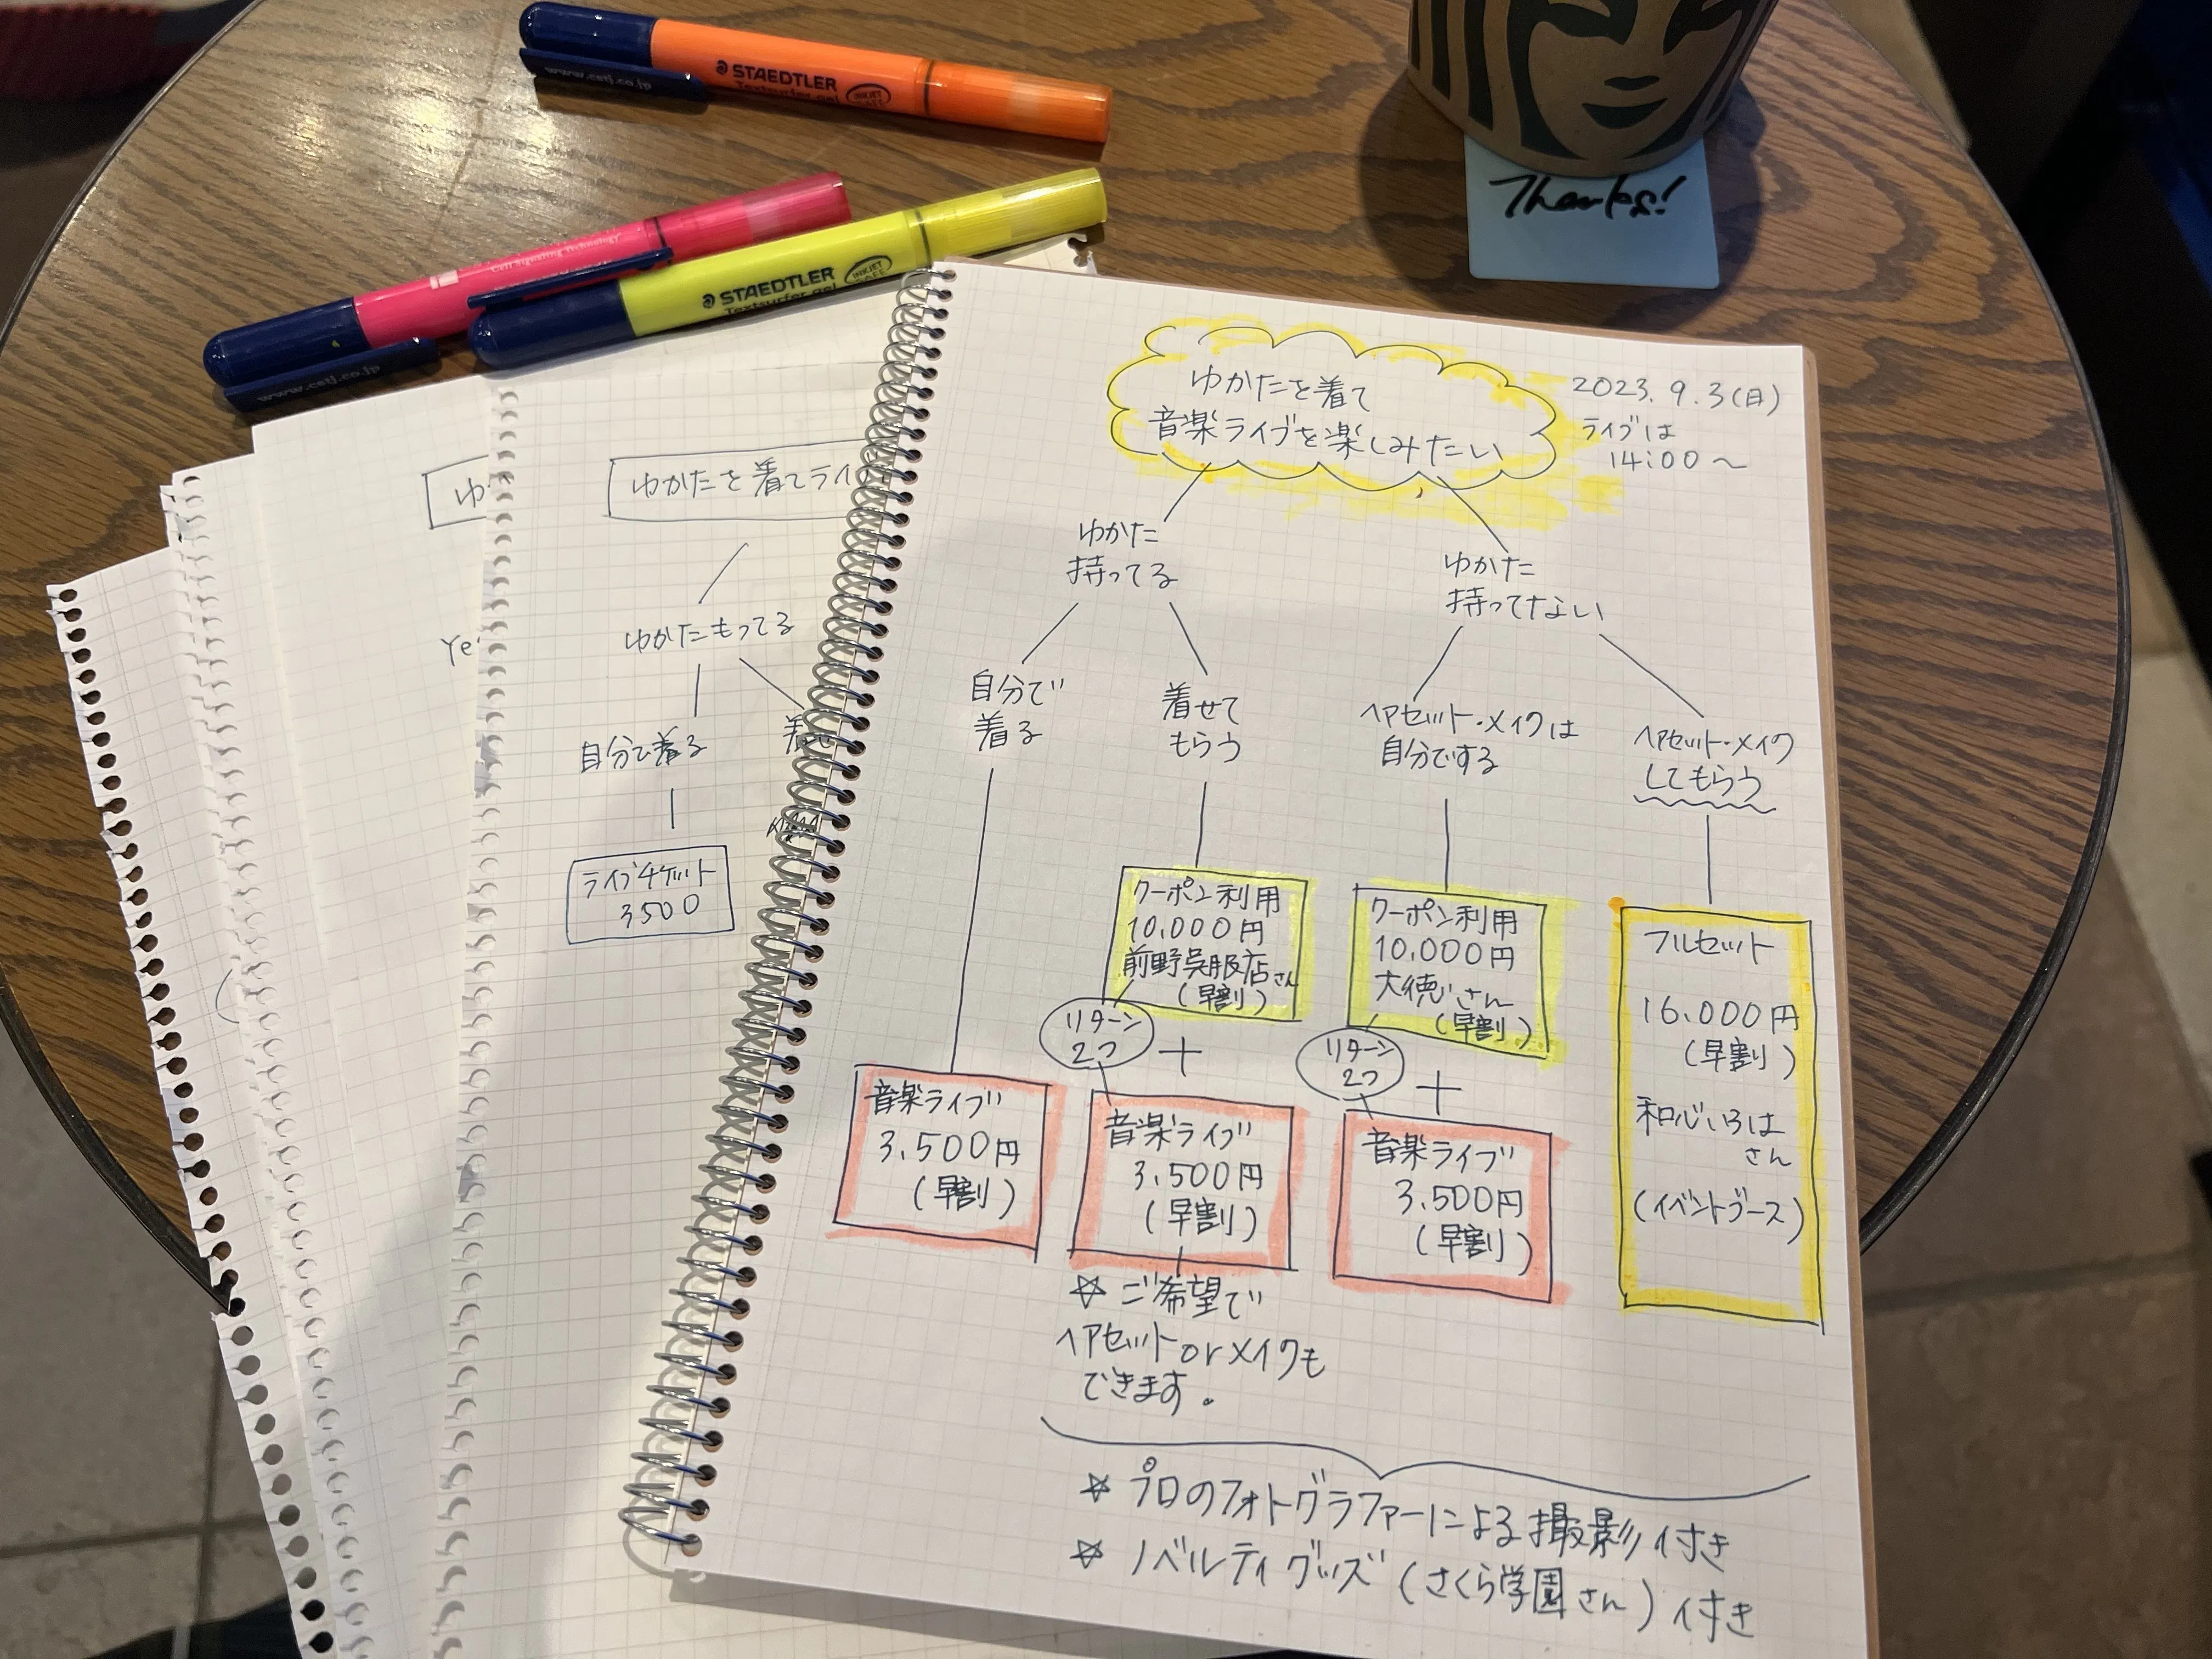 STAEDTLER
Textsurfer gel
INKJET SAFE
www.cstj.co.jp
Cell Signaling Technology
STAEDTLER
Textsurfer gel
INKJET SAFE
www.cstj.co.jp
Thanks!
ゆかたを着てライ
ゆかたもってる
自分で着る
ライブチケット
3500
ゆ
Ye
ゆかたを着て
音楽ライブを楽しみたい
2023.9.3(日)
ライブは
14:00〜
ゆかた
持ってる
ゆかた
持ってない
自分で
着る
着せて
もらう
ヘアセット・メイクは
自分でする
ヘアセット・メイク
してもらう
クーポン利用
10,000円
前野呉服店さん
(早割)
クーポン利用
10,000円
大徳さん
(早割)
フルセット
16,000円
(早割)
和心いろは
さん
(イベントブース)
リターン
2つ
+
リターン
2つ
+
音楽ライブ
3,500円
(早割)
音楽ライブ
3,500円
(早割)
音楽ライブ
3,500円
(早割)
☆ ご希望で
ヘアセットorメイクも
できます。
☆ プロのフォトグラファーによる撮影付き
☆ ノベルティグッズ(さくら学園さん)付き